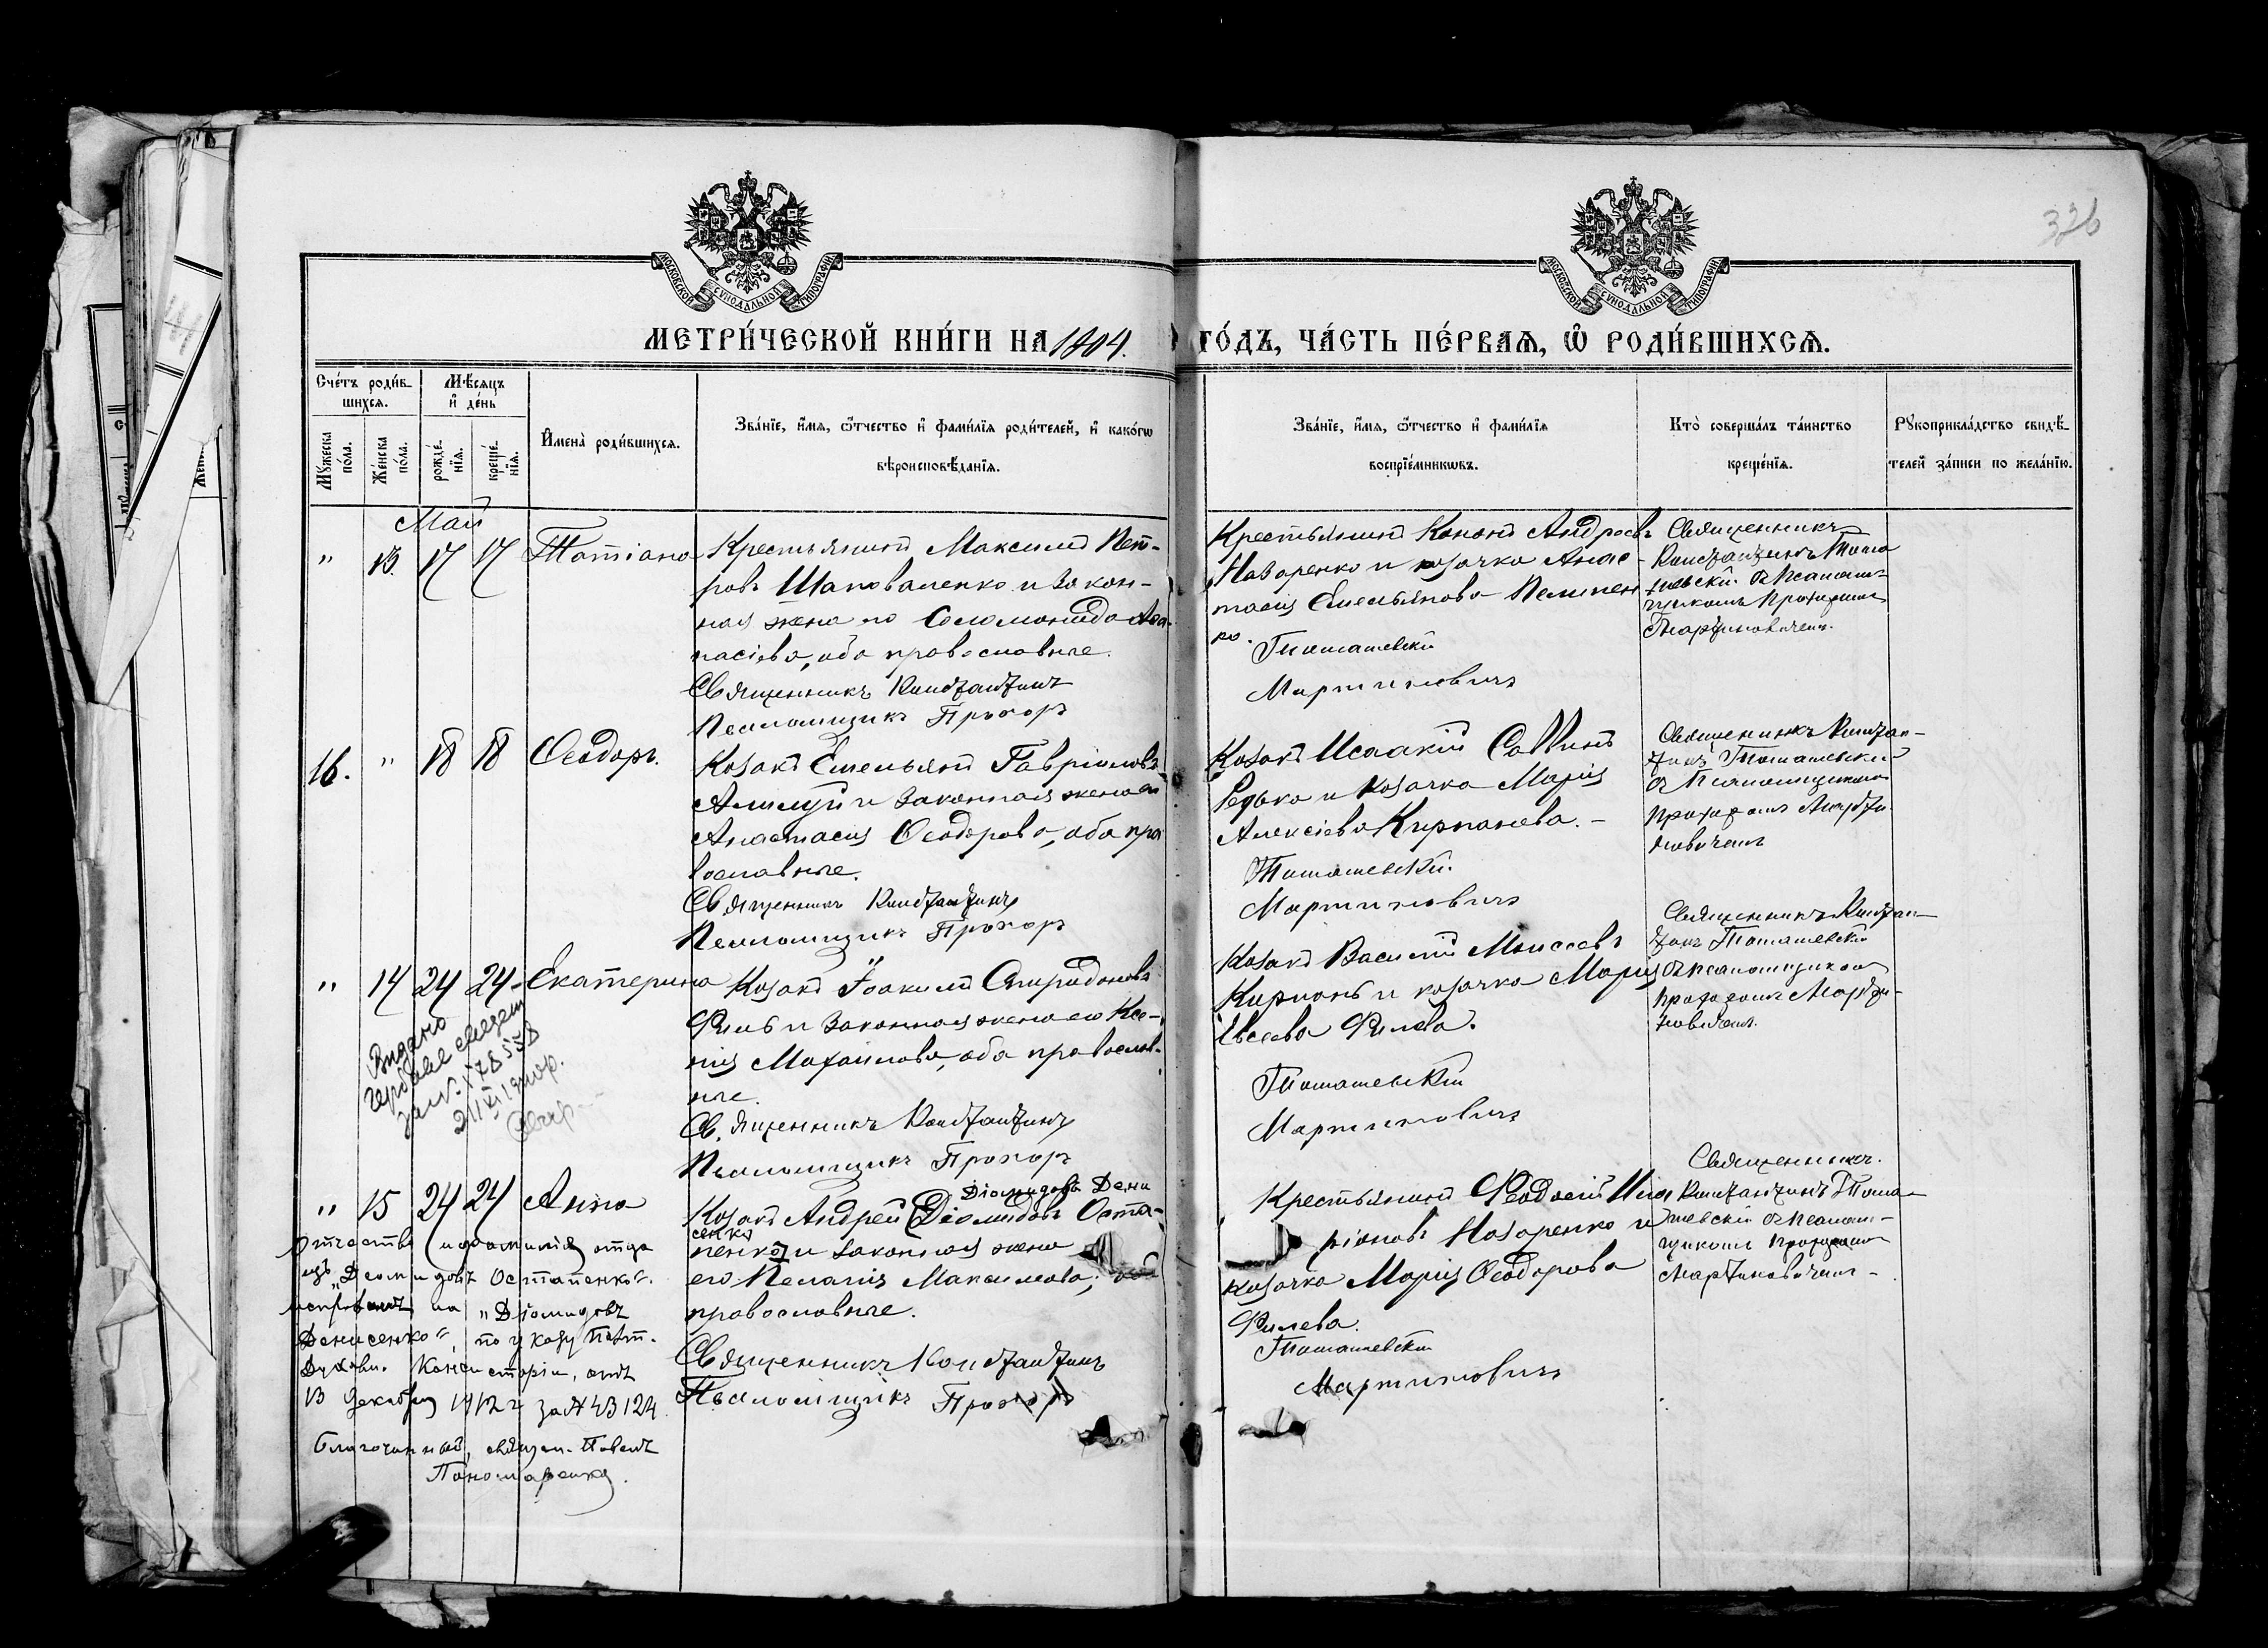 326
МОСКОВСКОЙ СѴНОДАЛЬНОЙ ТИПОГРАФІИ
МОСКОВСКОЙ СѴНОДАЛЬНОЙ ТИПОГРАФІИ
МЕТРИ́ЧЕСКОЙ КНИ́ГИ НА 1904. ГО́ДЪ, ЧА́СТЬ ПЕ́РВАѦ, Ѡ РОДИ́ВШИХСѦ.
Сче́тъ роди́в-
шихсѧ.
Мѣ́сѧцъ
и҆ де́нь
Мꙋ́жеска
по́ла.
Же́нска
по́ла.
рожде́-
нїѧ.
креще́-
нїѧ.
И҆мена̀ роди́вшихсѧ.
Зва́нїе, и҆́мѧ, ѻ҆́тчество и҆ фами́лїѧ роди́телей, и҆ како́гѡ
вѣроисповѣ́данїѧ.
Зва́нїе, и҆́мѧ, ѻ҆́тчество и҆ фами́лїѧ
воспрїе́мникѡвъ.
Кто̀ соверша́лъ та́инство
креще́нїѧ.
Рꙋкоприкла́дство свидѣ́-
телей за́писи по жела́нїю.
Май
" 13. 17 17 Татіана
Крестьянинъ Максимъ Пет-
ровъ Шаповаленко и закон-
ная жена его Соломонида Аѳа-
насіева, оба православные.
Священникъ Константинъ
Псаломщикъ Прохоръ
Крестьянинъ Кононъ Андреевъ
Назаренко и козачка Анас-
тасія Емельянова Пелипен
ко.
Томашевскій
Мартиновичъ
Священникъ
Константинъ Тома
шевскій съ Псалом-
щикомъ Прохоромъ
Мартиновичемъ.
16. " 18 18 Ѳеодоръ.
Козакъ Емельянъ Гавріиловъ
и законная жена его
Анастасія Ѳеодорова, оба пра
вославные.
Священникъ Константинъ
Псаломщикъ Прохоръ
Козакъ Исаакій Саввинъ
Редька и козачка Марія
Алексіева Кирпанева.-
Томашевскій.
Мартиновичъ
Священникъ Констан-
тинъ Томашевскій
съ Псаломщикомъ
Прохоромъ Марти-
новичемъ
" 14 24 24 Екатерина
Козакъ Іоакимъ Спиридоновъ
Филь и законная жена его Ксе-
нія Михаилова, оба православ-
ные.
Священникъ Константинъ
Псаломщикъ Прохоръ
Козакъ Василій Моисеевъ
Кирпань и козачка Марія
Евсеева Филева.
Томашевскій
Мартиновичъ
Священникъ Констан-
тинъ Томашевскій
съ псаломщикомъ
Прохоромъ Марти-
новичемъ.
Видано
" 15 24 24 Анна
Діомидовъ Дени
Козакъ Андрей (Діомидовъ Оста-
сенко
пенко) и законная жена
его Пелагія Максимова, оба
православные.
Священникъ Константинъ
Псаломщикъ Прохоръ
Крестьянинъ Ѳеодосій Ила
ріоновъ Назаренко и
козачка Марія Ѳеодорова
Филева.
Томашевскій
Мартиновичъ
Священникъ
Константинъ Тома-
шевскій съ псалом-
щикомъ Прохоромъ
Мартиновичемъ-
Отчество и фамилія отца
изъ „Демидовъ Остапенко".
исправлены на „Діомидовъ
Денисенко", по указу Полт.
Духовн. Консисторіи, отъ
13 декабря 1912 г за № 43124.
Благочинный, священ. Павелъ
Пономаренко.